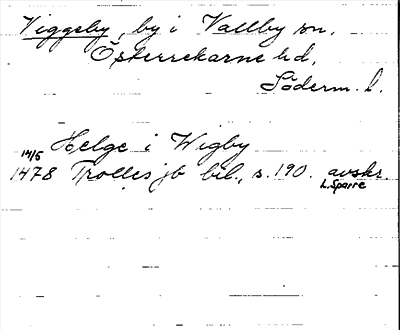 Viggeby, by i Vallby sn,
Österrekarne hd,
Söderm. l.
Helge i Wigby
14/5
1478 Trolles jb bil., s. 190. avskr.
L. Sparre